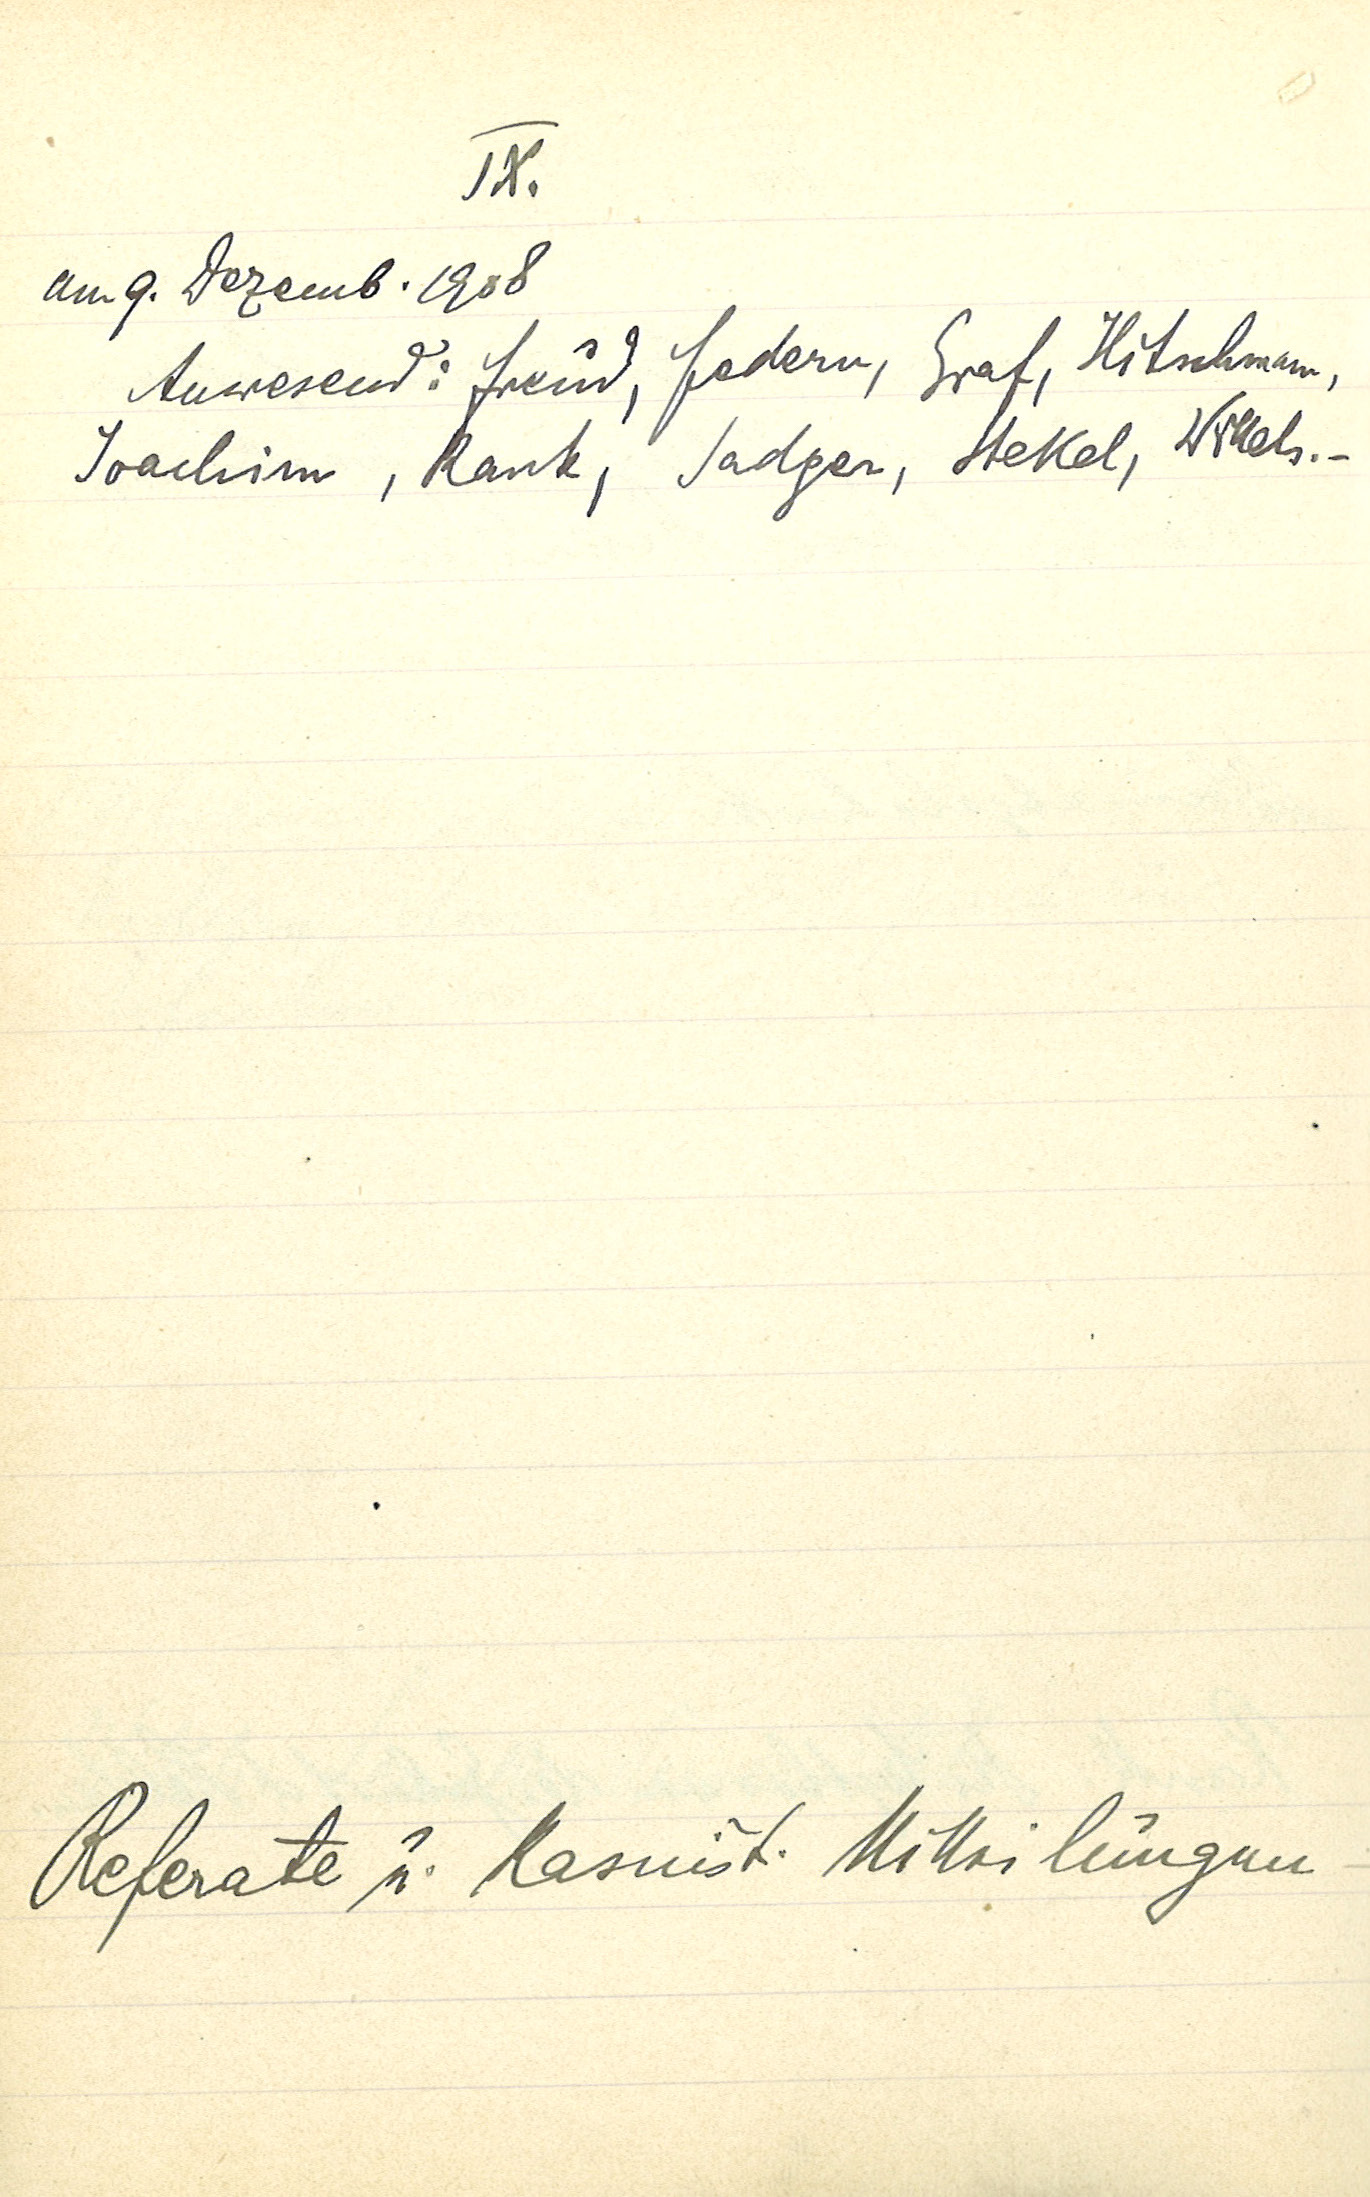 IX.
am 9. Dezemb. 1908
Anwesend: Freud, Federn, Graf, Hitschmann,
Joachim, Rank, Sadger, Stekel, Wittels.–
Referate u. Kasuist. Mitteilungen